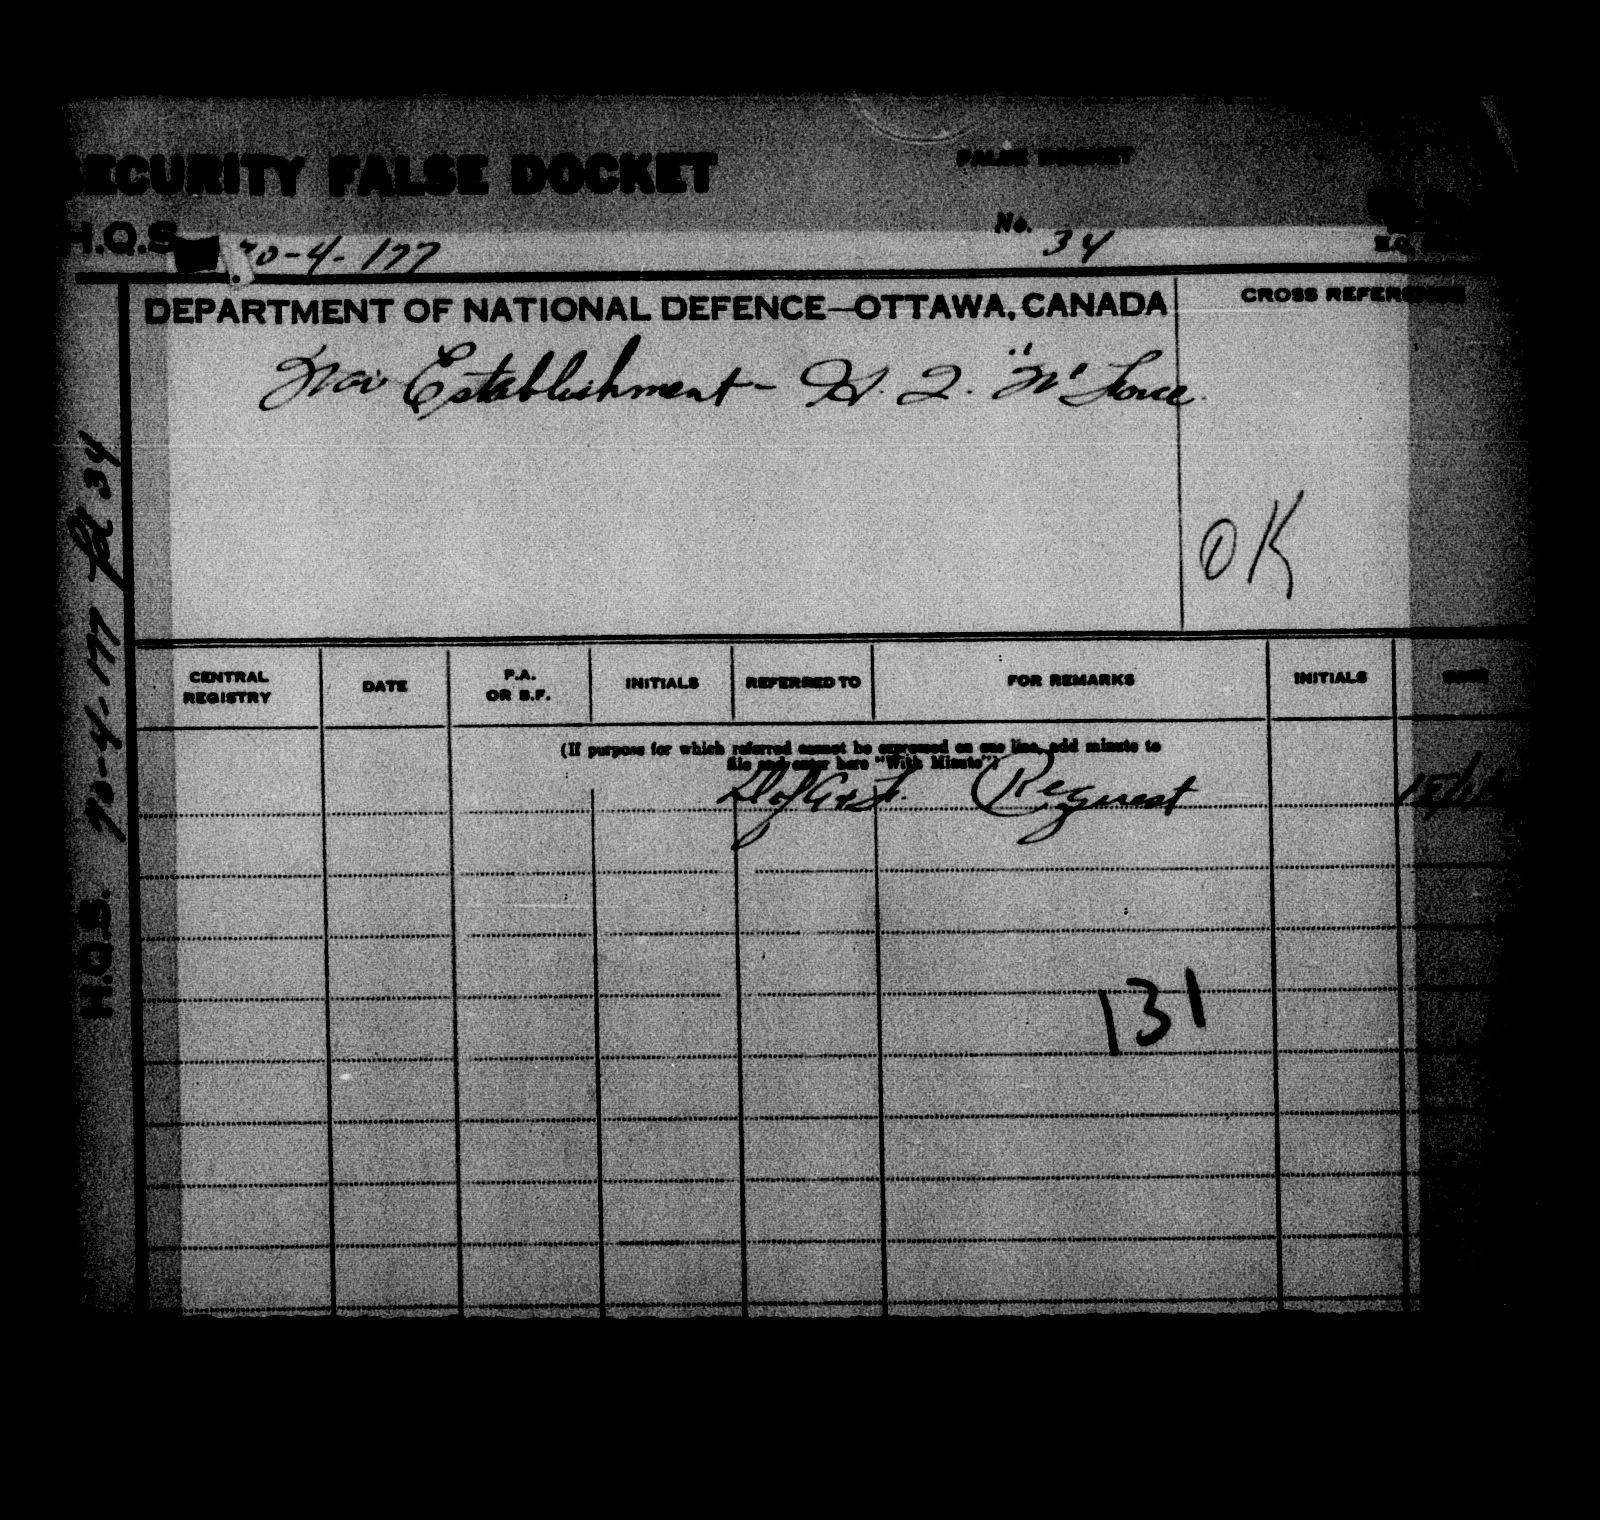 SECURITY FALSE DOCKET
FALSE DOCKET
H.Q.S. 70-4-177
No. 34
DEPARTMENT OF NATIONAL DEFENCE—OTTAWA, CANADA
CROSS REFERENCE
War Establishment - H. Q. "W" Force.
OK
H.Q.S. 70-4-177 fd 34
CENTRAL REGISTRY
DATE
P.A. OR B.F.
INITIALS
REFERRED TO
FOR REMARKS
INITIALS
DATE
(If purpose for which referred cannot be expressed on one line, add minute to
file and enter here "With Minute")
Request
131